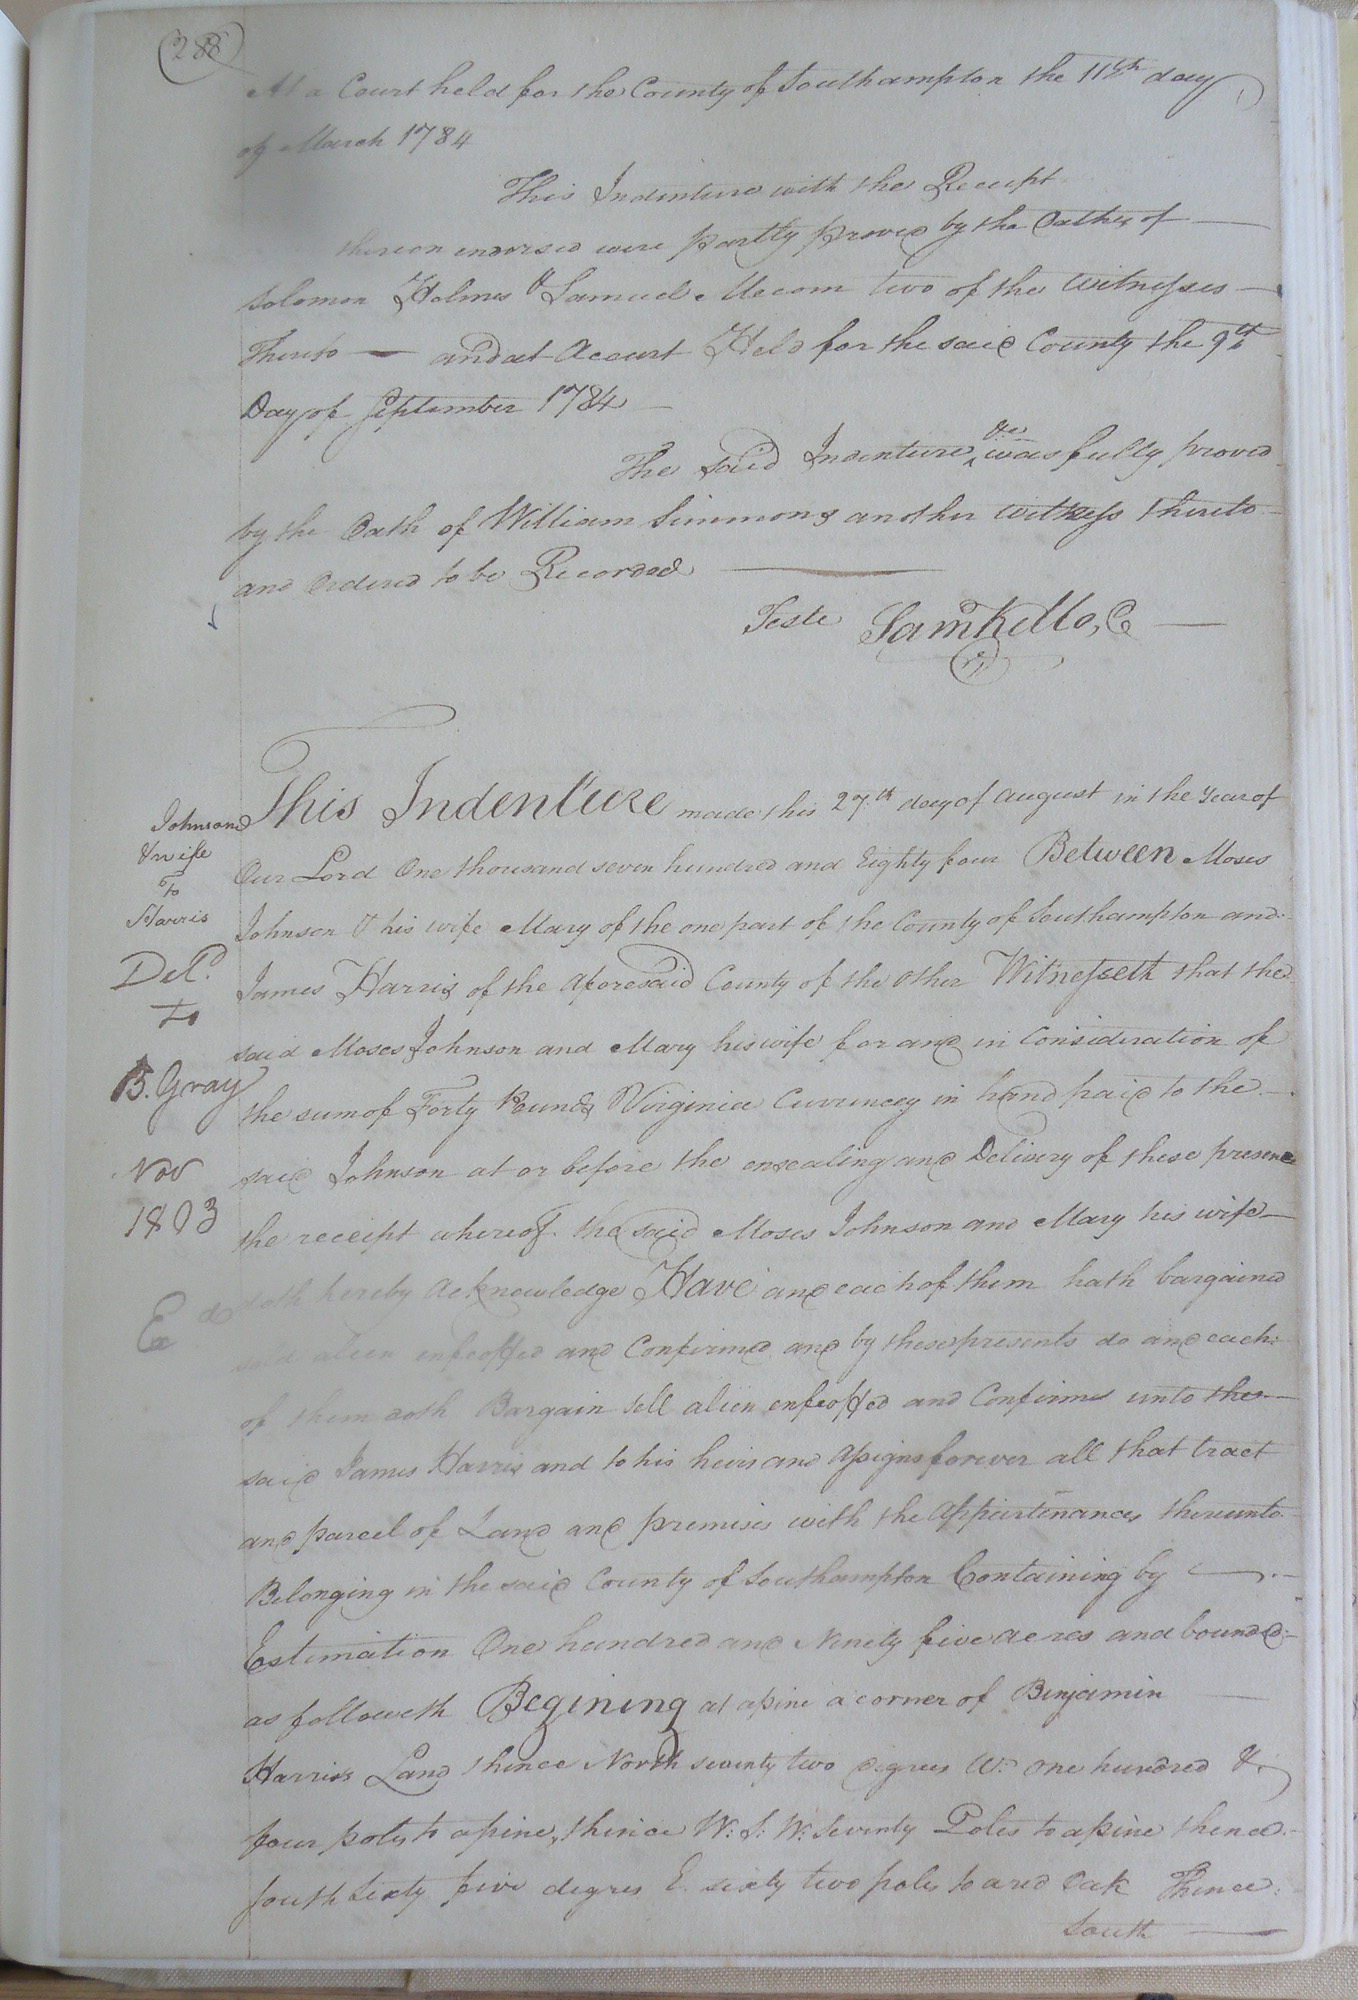 288
At a Court held for the County of Southampton the 11th day
of March 1784
This Indenture with the Receipt
thereon endorsed were partly proved by the Oaths of
Solomon Holmes & Samuel Mecom two of the Witnesses
Thereto — and at Acourt Held for the said County the 9th
Day of September 1784
The said Indenture &c was fully proved
by the Oath of William Simmons another witness thereto
and Ordered to be Recorded
Teste Saml Kello, C
Johnson
& wife
To
Harris
Deld
To
B. Gray
Nov
1803
Exd
This Indenture made this 27th day of august in the Year of
Our Lord One thousand seven hundred and Eighty four Between Moses
Johnson & his wife Mary of the one part of the County of Southampton and
James Harris of the aforesaid County of the other Witnesseth that the
said Moses Johnson and Mary his wife for and in Consideration of
the sum of Forty Pounds Virginia Curruncey in hand paid to the
said Johnson at or before the ensealing and Delivery of these presence
the receipt whereof the said Moses Johnson and Mary his wife
doth hereby acknowledge Have and each of them hath bargained
sold alien enfeoffed and Confirmed and by these presents do and each
of them doth Bargain sell alien enfeoffed and Confirme unto the
said James Harris and to his heirs and assigns forever all that tract
and parcel of Land and premises with the appurtenances thereunto
Belonging in the said County of Southampton Containing by
Estimation One hundred and Ninety five acres and bounded
as followeth Begining at apine a corner of Benjamin
Harriss Land thence North seventy two degrees W. one hundred &
four poles to apine, thence W: S: W: seventy Poles to apine thence
South Sixty five degres E. sixty two poles to a red Oak Thence
South